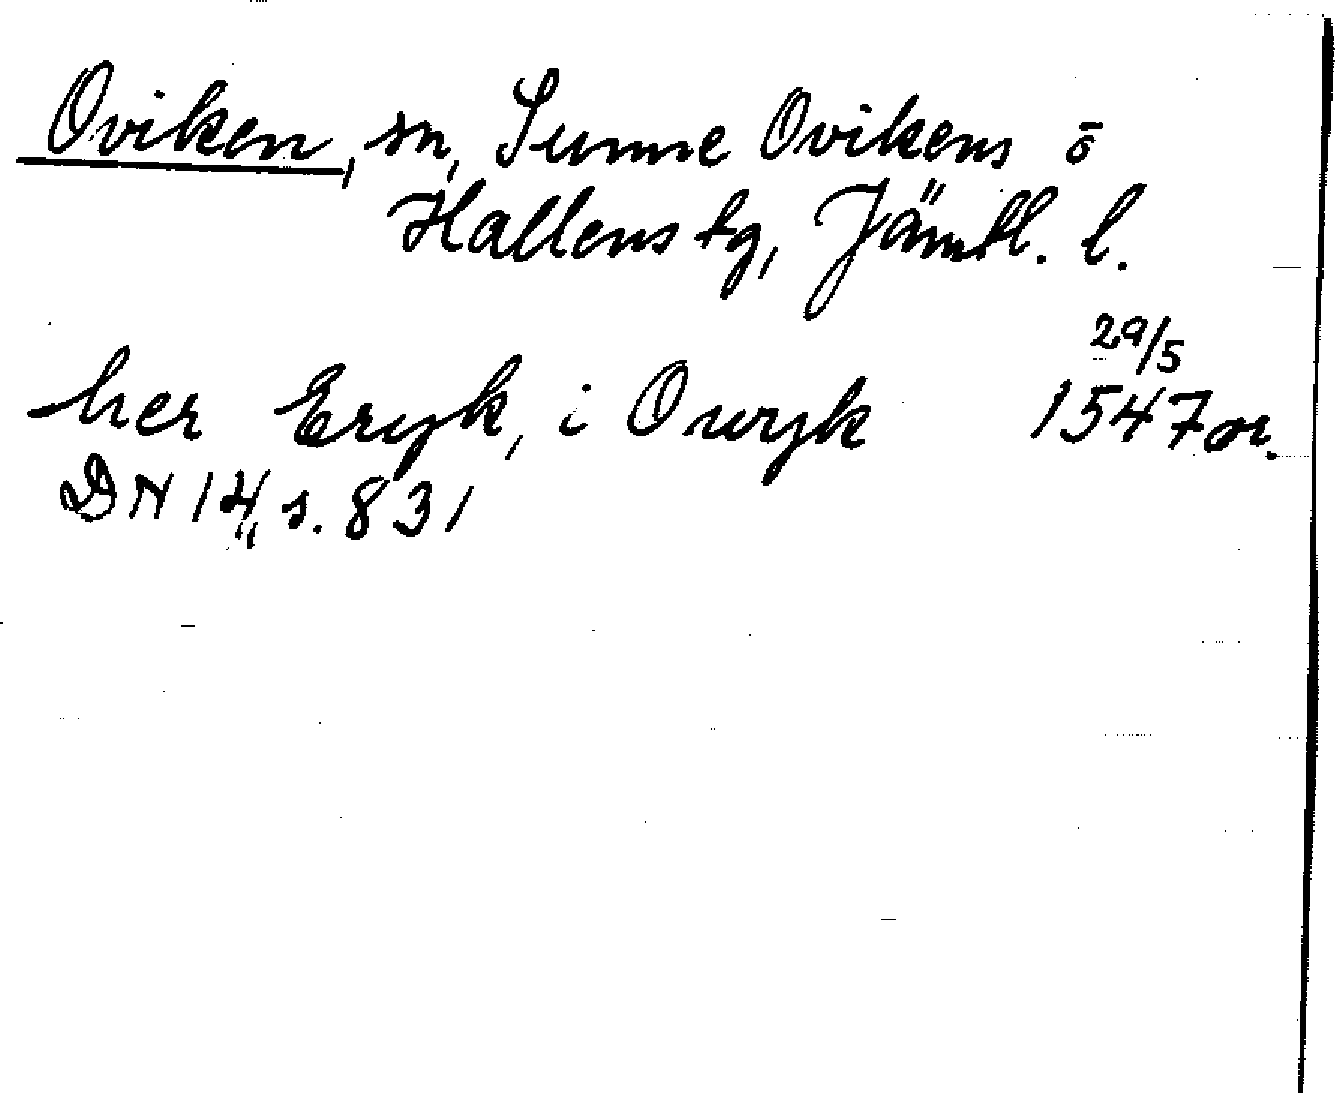 Oviken, sn, Sunne Ovikens o
Hallens tg, Jämtl. l.
29/5
her Eryk, i Owyk 1547 or.
DN 14, s. 831